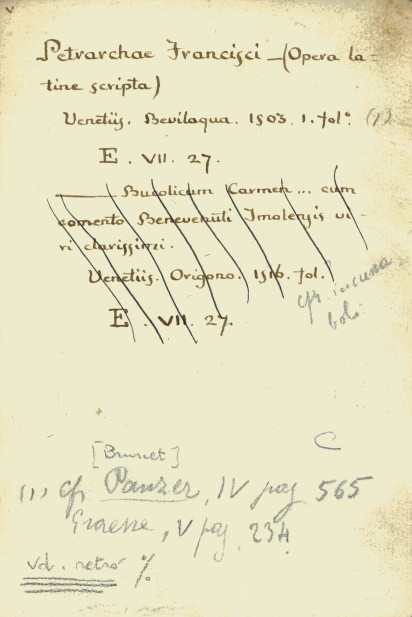 Petrarchae Francisci – (Opera la-
tine scripta)
Venetiis. Bevilaqua. 1503. 1. fol.° (1)
E. VII. 27.
—— Bucolicum Carmen ... cum
comento Benevenuti Imolensis vi-
ri clarissimi.
Venetiis. Origono. 1516. fol.
cfr. incuna
boli
E. VII. 27.
C
[Brunet]
(1) cfr Panzer, IV pag 565
Graesse, V pag. 234.
vd. retro %